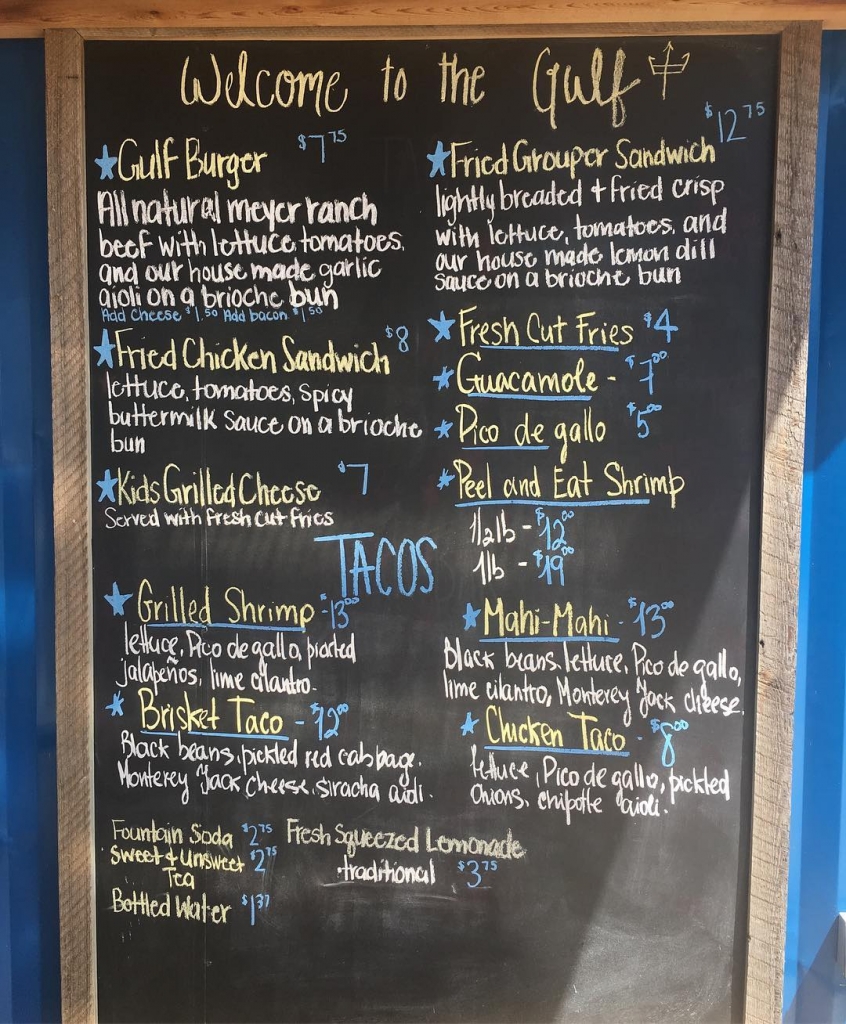 Welcome to the Gulf
Gulf Burger $7.75
All natural meyer ranch
beef with lettuce, tomatoes,
and our house made garlic
aioli on a brioche bun
Add Cheese $1.50 Add bacon $1.50
Fried Chicken Sandwich $8
lettuce, tomatoes, spicy
buttermilk sauce on a brioche
bun
Kids Grilled Cheese $7
Served with fresh cut fries
Fried Grouper Sandwich $12.75
lightly breaded + fried crisp
with lettuce, tomatoes, and
our house made lemon dill
sauce on a brioche bun
Fresh Cut Fries $4
Guacamole - $7.00
Pico de gallo $5.00
Peel and Eat Shrimp
1/2 lb - $12.00
1lb - $19.00
TACOS
Grilled Shrimp - $13.00
lettuce, Pico de gallo,
jalapeños, lime cilantro.
Brisket Taco - $12.00
Black beans, pickled red cabbage,
Monterey Jack Cheese, siracha aioli.
Mahi-Mahi - $13.00
Black beans, lettuce, Pico de gallo,
lime cilantro, Monterey Jack cheese.
Chicken Taco - $8.00
lettuce, Pico de gallo, pickled
onions, chipotle aioli.
Fountain Soda $2.75
Sweet + Unsweet $2.75
Tea
Bottled Water $1.37
Fresh Squeezed Lemonade
traditional $3.75